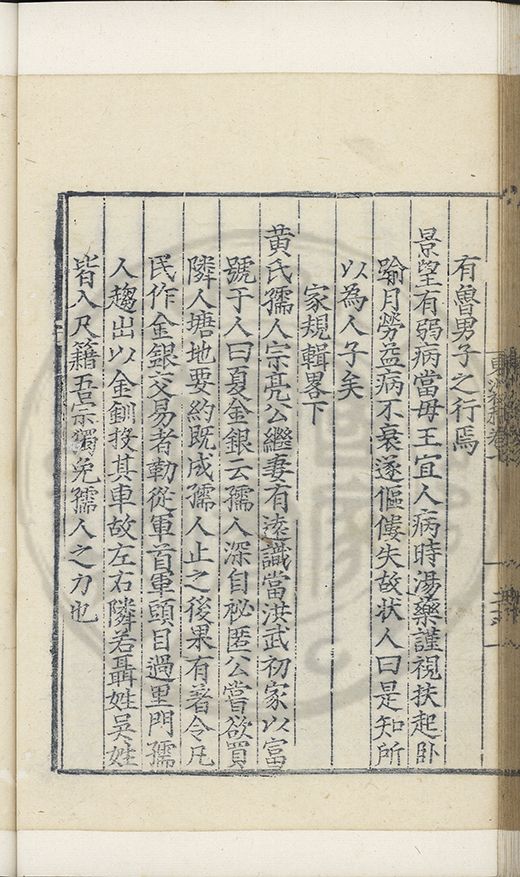 有魯男子之行焉
景塋有弱病當毋王宜人病時湯藥謹視扶起卧
踰月勞益病不衰遂傴僂失故狀人曰是知所
以為人子矣
家規輯畧下
黄氏孺人宗亮公繼妻有遠識當洪武初家以富
號于人曰夏金銀云孺人深自祕匿公嘗欲買
隣人塘地要約既成孺人止之後果有著令凡
民作金銀交易者勒從軍首軍頭目過里門孺
人趨出以金釧投其車故左右隣若聶姓吳姓
皆入尺籍吾宗獨免孺人之力也